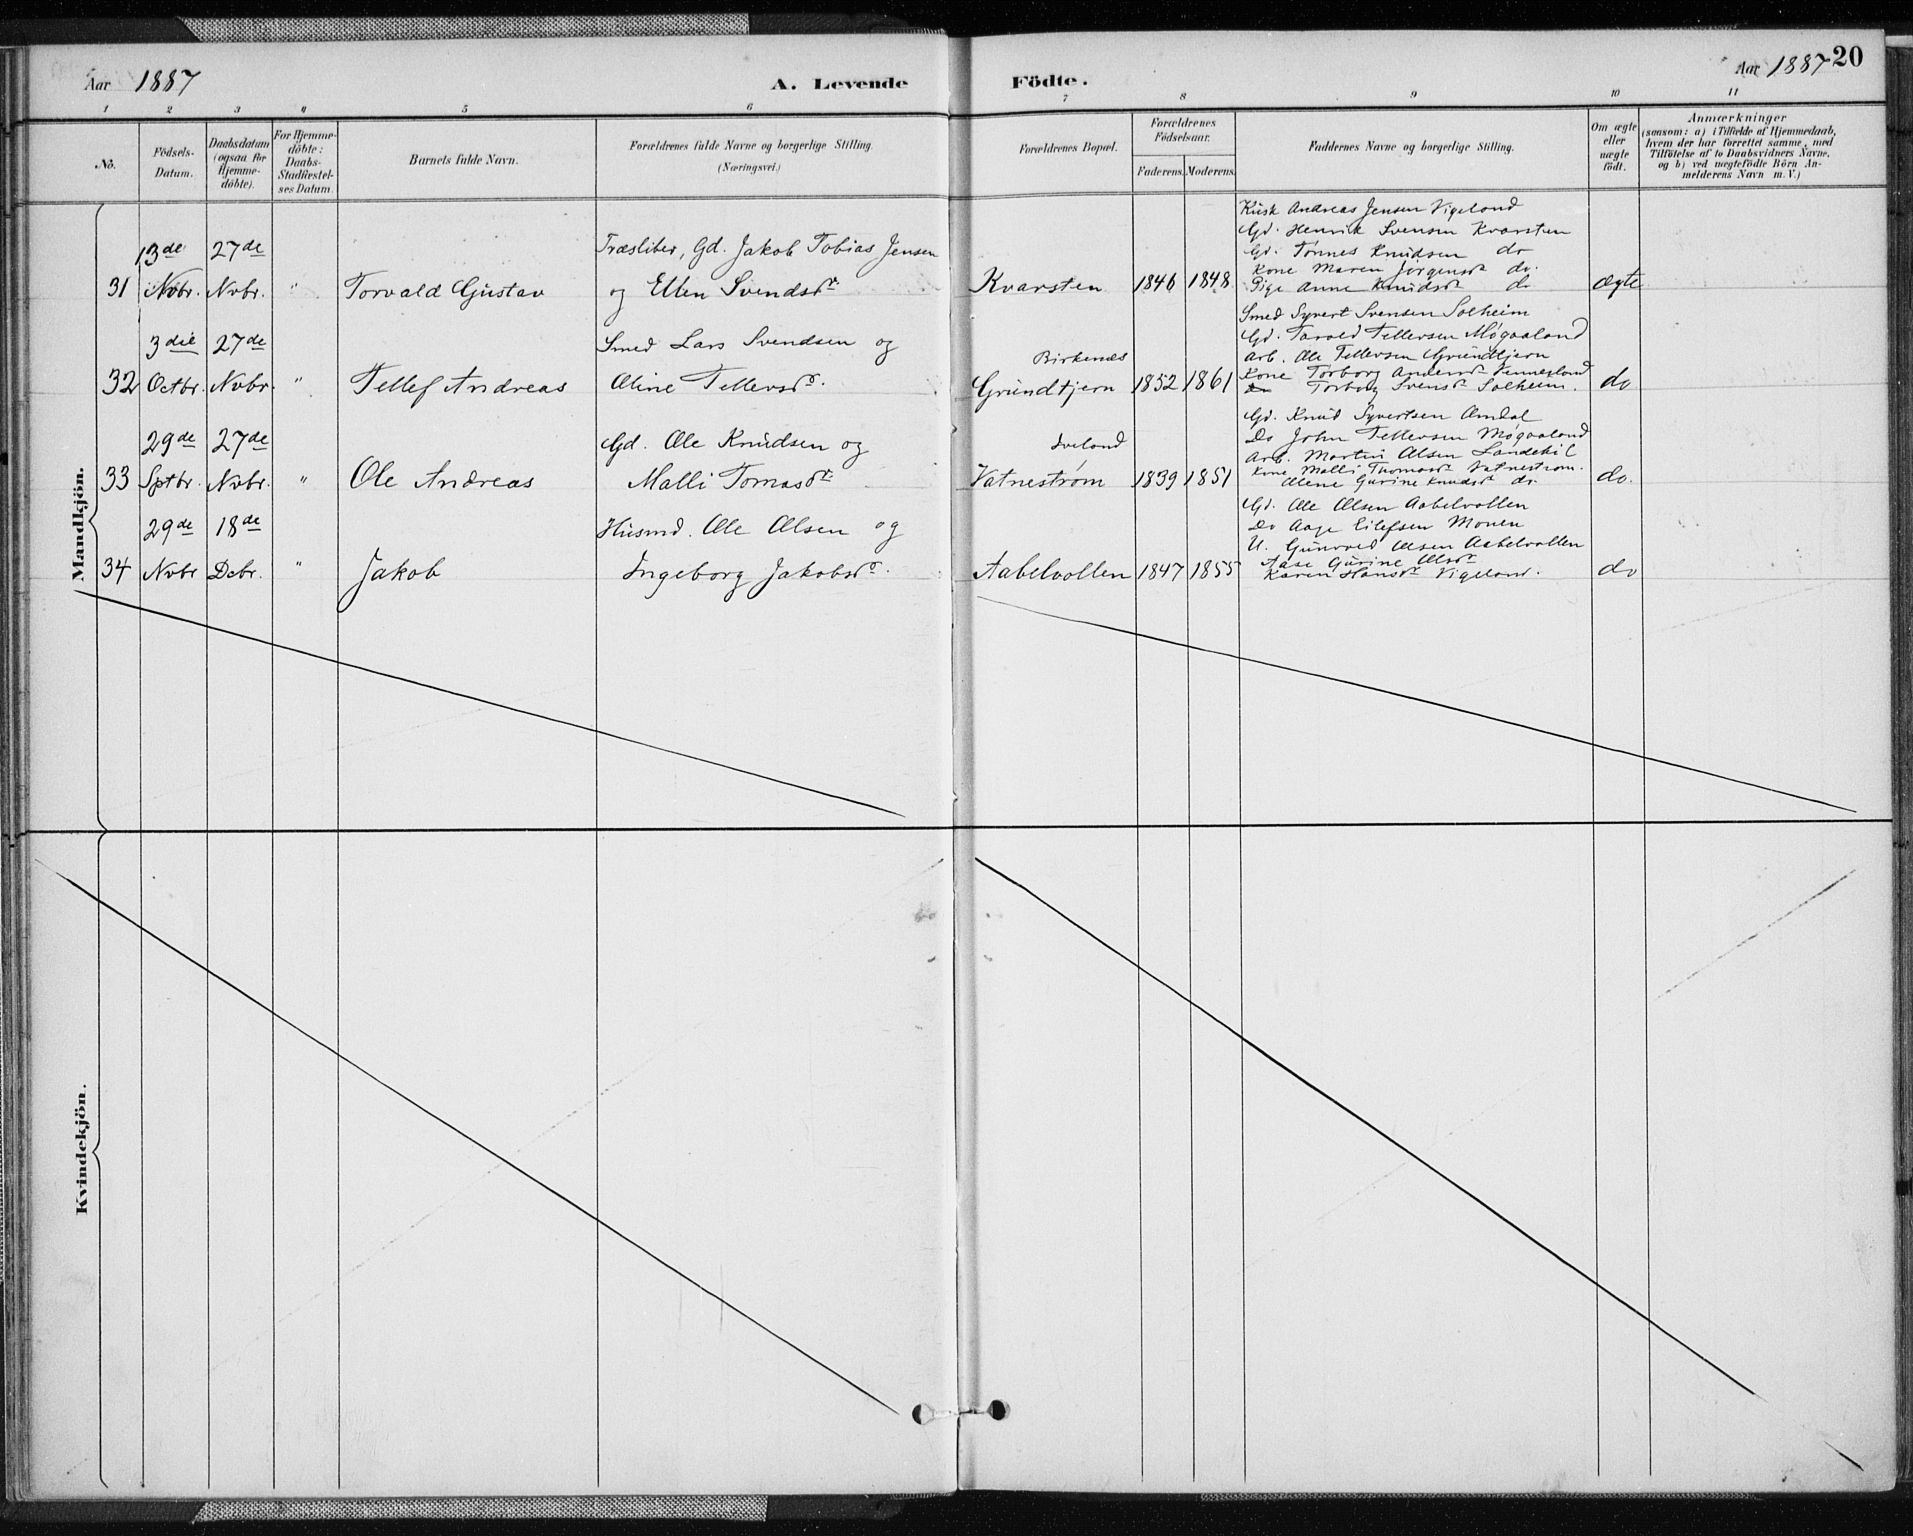 Aar 1887
A. Levende Födte.
Aar 1887 20
1 2 3 4 5 6 7 8 9 10 11
No.
Födsels-Datum.
Daabsdatum (ogsaa for Hjemme-döbte).
For Hjemme-döbte: Daabs-Stadfæstel-ses Datum.
Barnets fulde Navn.
Forældrenes fulde Navne og borgerlige Stilling. (Næringsvei.)
Forældrenes Bopæl.
Forældrenes Födselsaar.
Faderens. Moderens.
Faddernes Navne og borgerlige Stilling.
Om ægte eller uægte födt.
Anmærkninger
(saasom: a) i Tilfælde af Hjemmedaab,
hvem der har forrettet samme, med
Tilföielse af to Daabsvidners Navne,
og b) ved uægtefödte Börn An-
melderens Navn m. V.)
Mandkjön.
31
13de Novbr.
27de Novbr.
"
Torvald Gustav
Træsliber, Gd. Jakob Tobias Jensen
og Ellen Svendsdr.
Kvarsten
1846 1848
Kusk Andreas Jensen Vigeland
Gd. Henrik Svensen Kvarsten
Gd. Tønnes Knudsen do
Kone Maren Jørgensdr do.
Pige Anne Knudsdr do
ægte
32
3die Octbr.
27de Novbr.
"
Tellef Andreas
Smed Lars Svendsen og
Oline Tellevsdr.
Birkenes
Grundtjern
1852 1861
Smed Syvert Svensen Solheim
Gd. Tarald Tellevsen Møgaaland
Arb. Ole Tellevsen Grundtjern
Kone Torborg Andersdr Vennesland
Torborg Svensdr Solheim.
do
33
29de Sptbr.
27de Novbr.
"
Ole Andreas
Gd. Ole Knudsen og
Malli Tomasdr.
Iveland
Vatnestrøm
1839 1851
Gd. Knud Syvertsen Omdal
Do John Tellevsen Møgaaland
Arb. Martin Olsen
Kone Malli Thomasdr Vatnestrøm.
Olene Gurine Knudsdr do
do.
34
29de Novbr
18de Dcbr.
"
Jakob
Husmd. Ole Olsen og
Ingeborg Jakobsdr.
Aabelvollen
1847 1855
Gd. Ole Olsen Aabelvollen
Do Aage Eilefsen Monen
U. Gunvald Olsen Aabelvollen
Aase Gurine Olsdr
Karen Hansdr Vigeland.
do
Kvindekjön.